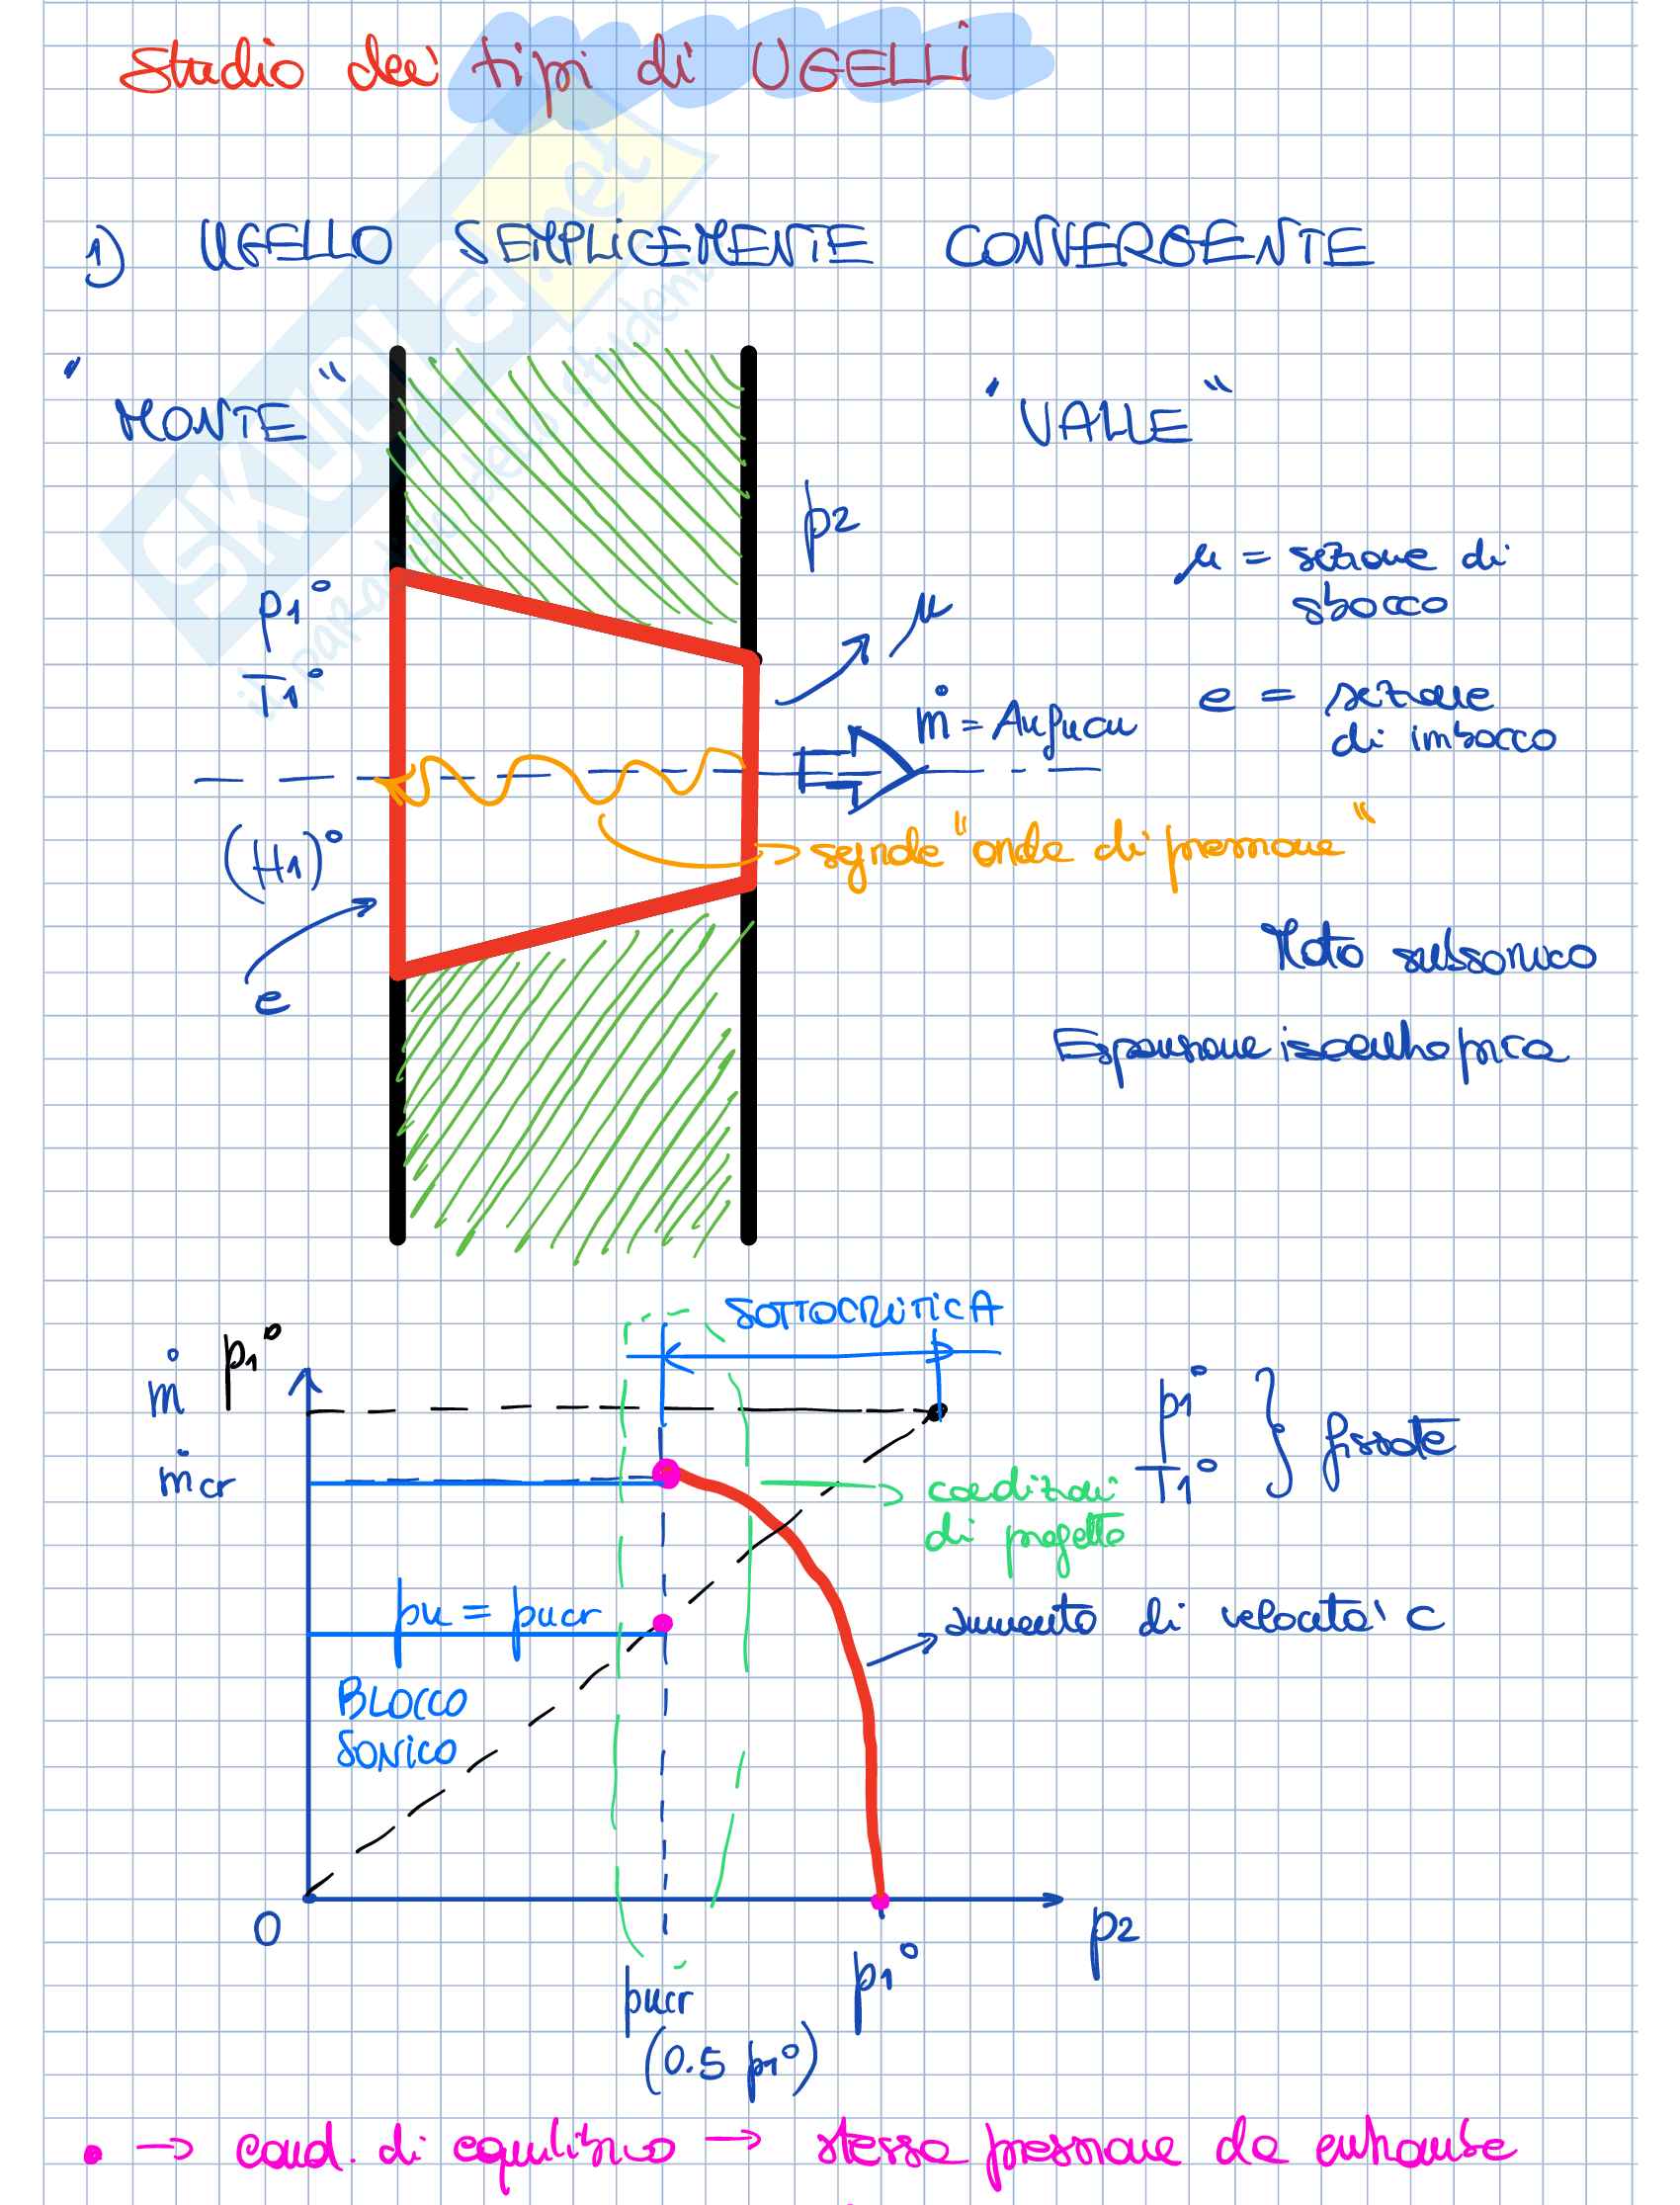 Studio dei tipi di UGELLI
1) UGELLO SEMPLICEMENTE CONVERGENTE
"MONTE"
"VALLE"
p2
μ = sezione di
sbocco
p1°
T1°
μ
e = sezione
di imbocco
ṁ = Aμρμcμ
(H1)°
segnale "onda di pressione"
e
Moto subsonico
Espansione isoentropica
SOTTOCRITICA
ṁ p1°
ṁcr
p1°
T1° } fissate
condizioni
di progetto
pμ = pμcr
aumento di velocità c
BLOCCO
SONICO
0
p2
pμcr
p1°
(0.5 p1°)
• → cond. di equilibrio → stessa pressione da entrambe
SKUOLA.net
il paradiso dello studente